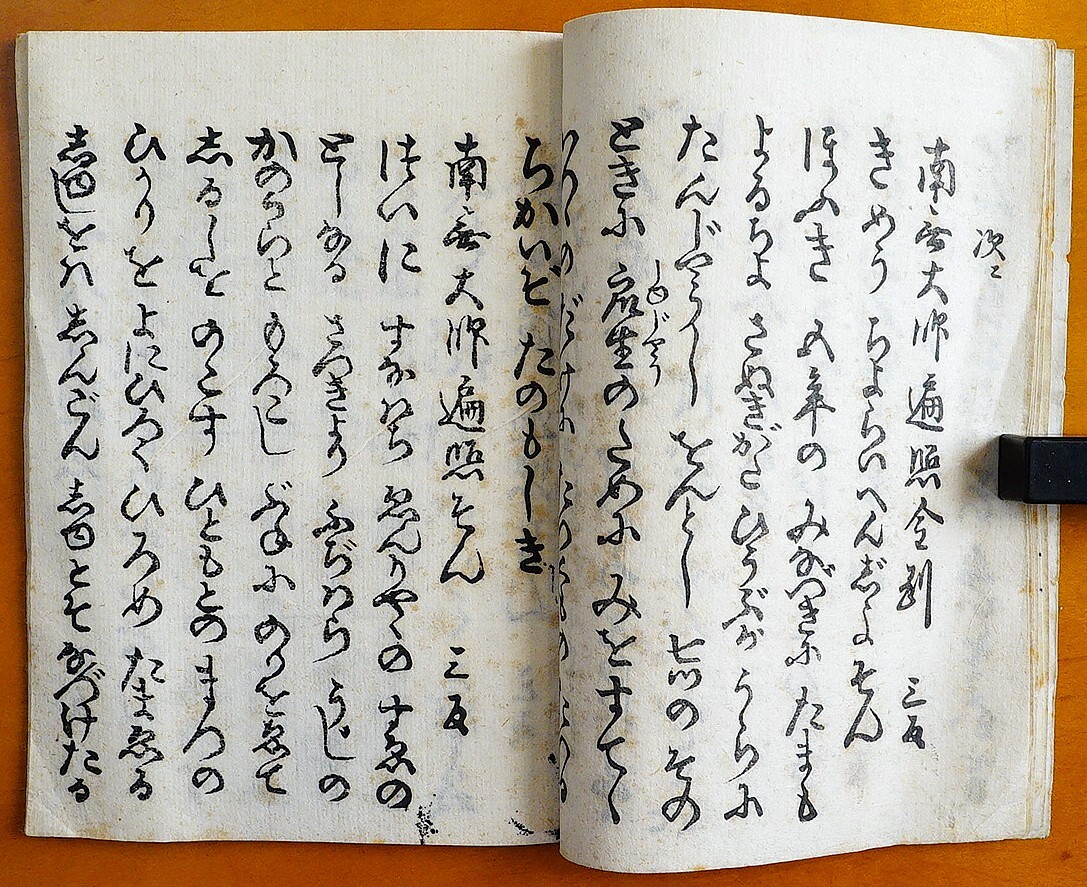 次ニ
南無大師遍照金剛 三反
きめう ちよらい へんぜう そん
ほふき 五年の みなづきに たまも
よるちよ さぬきがた ひうぶが うらに
たんじやうし をんとし 七つの その
ときに 衆生の ために みをすてゝ
しゆじやう
ちかいぞ たのもしき
南無大師遍照そん 三反
はいに すなわち ゑんりやくの すゑの
としなる さつきより ふぢわら うじの
かのうらと もろこし ぶねに のりをゑて
しるしを のこす ひともとの まつの
ひかりを よにひろく ひろめ たまゑる
志四をハ 志んごん 志四とぞ なづけたる